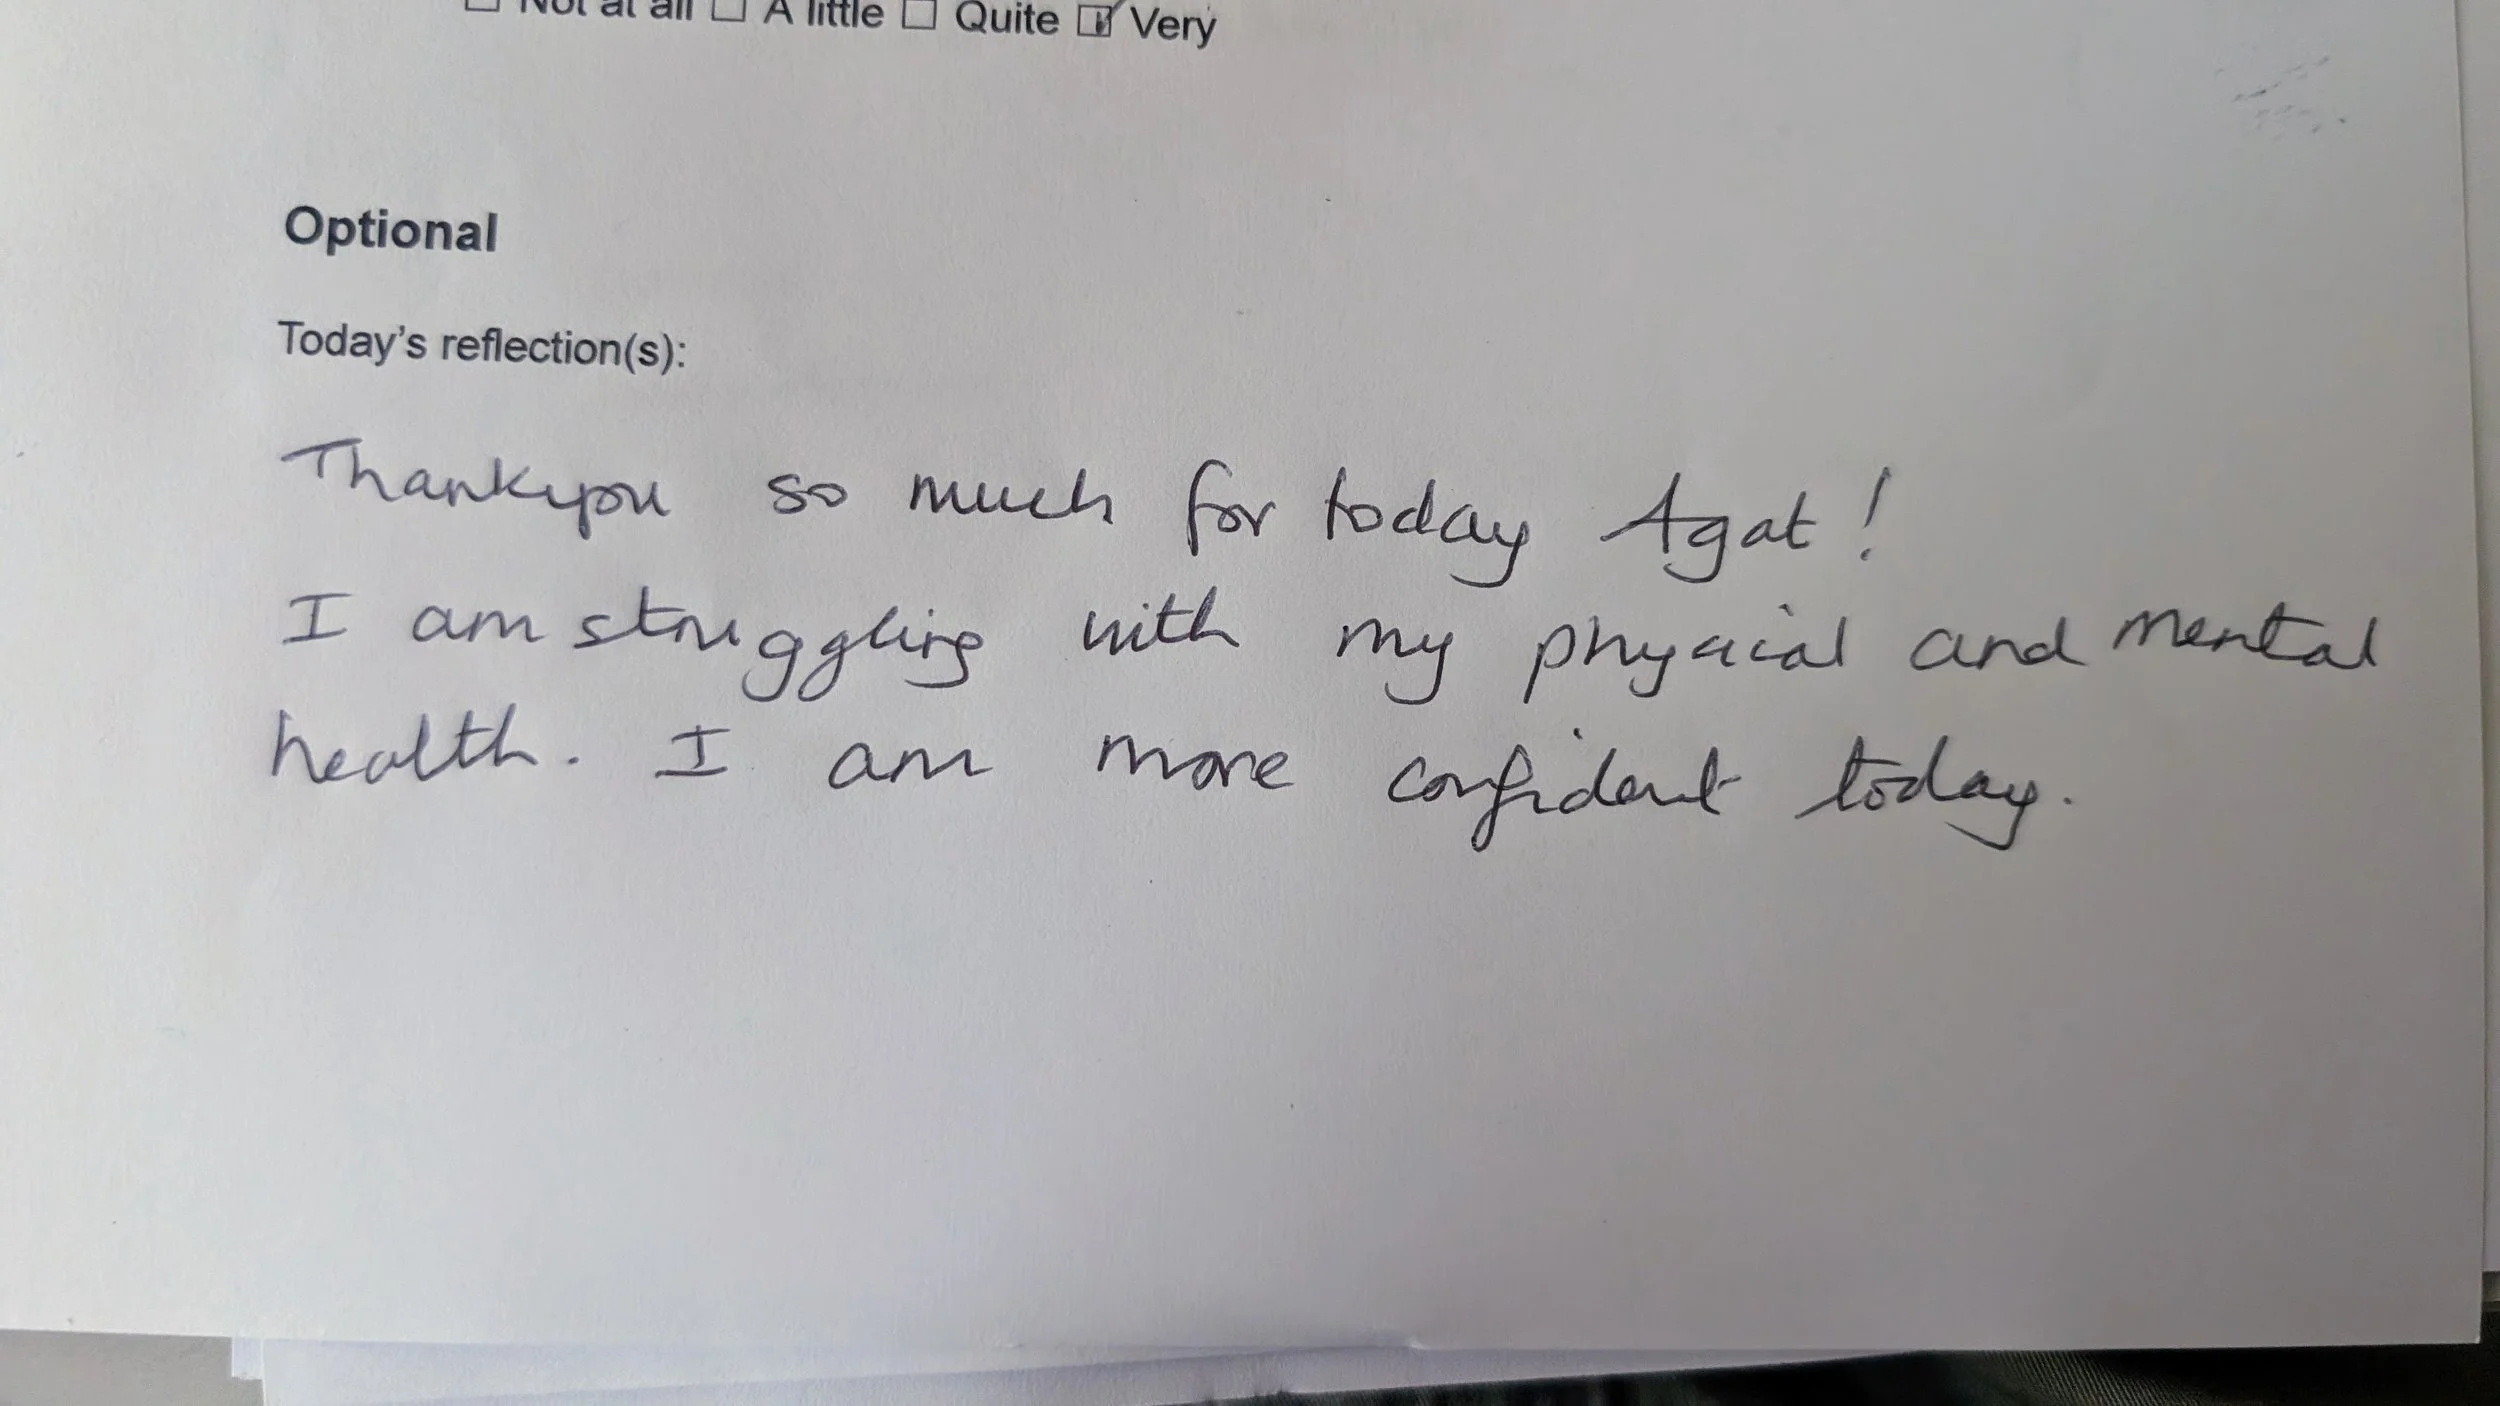 ☐ Not at all ☐ A little ☐ Quite ☑ Very
Optional
Today's reflection(s):
Thankyou so much for today Agat!
I am struggling with my physical and mental
health. I am more confident today.